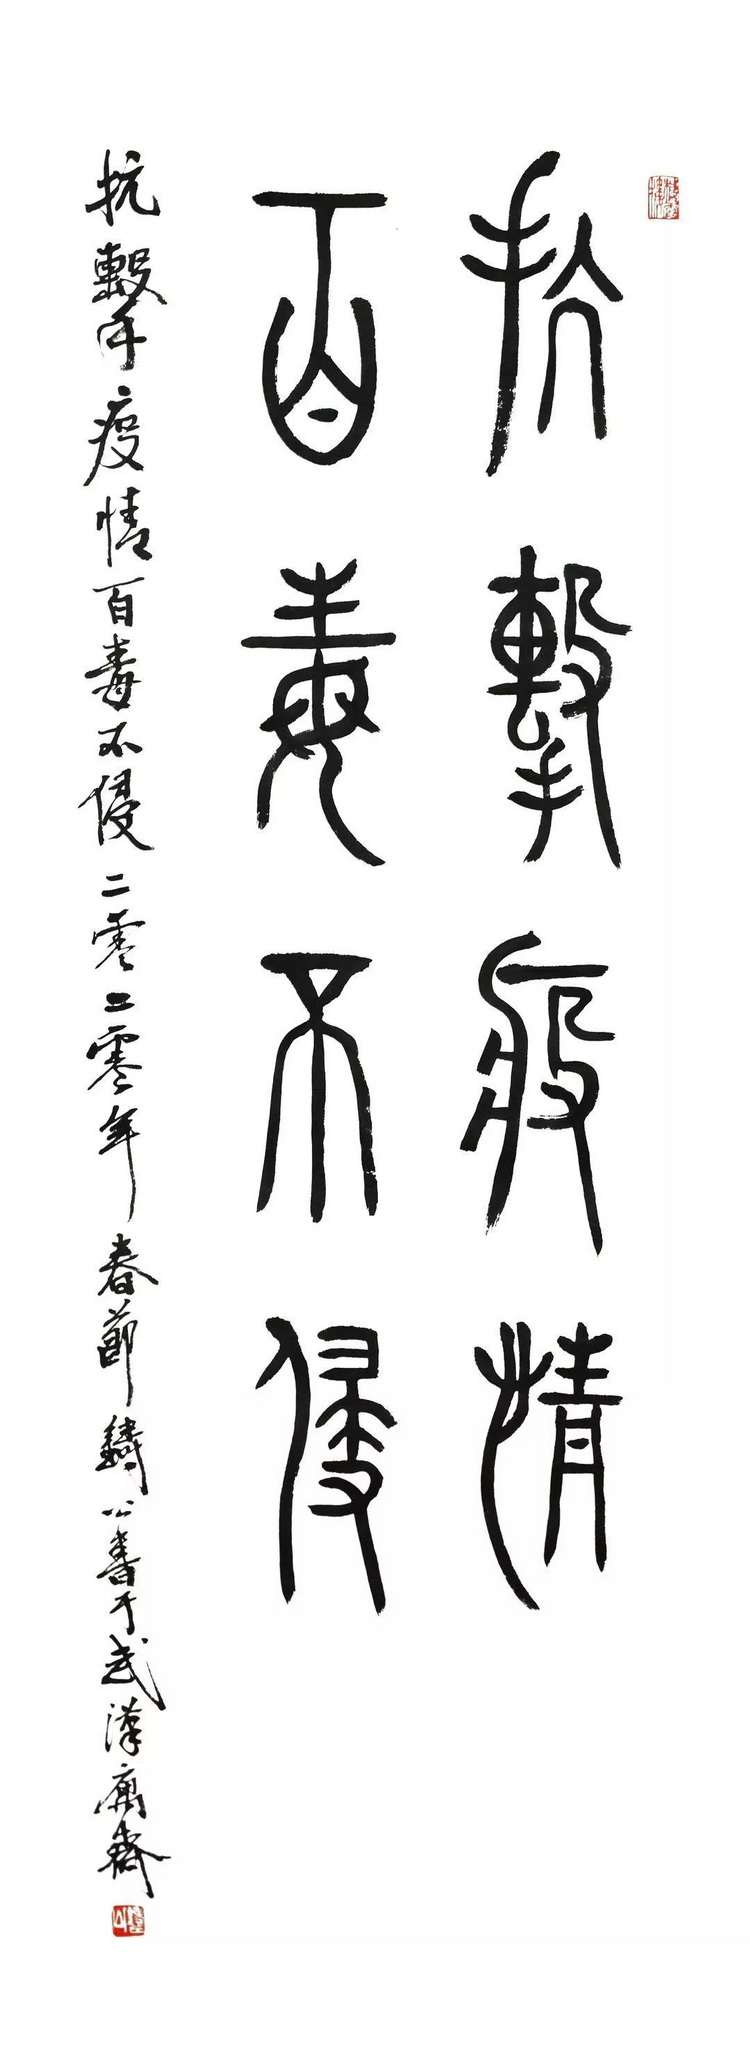 抗擊疫情
百毒不侵
抗擊疫情百毒不侵二零二零年春節鑄公書于武漢廌齋